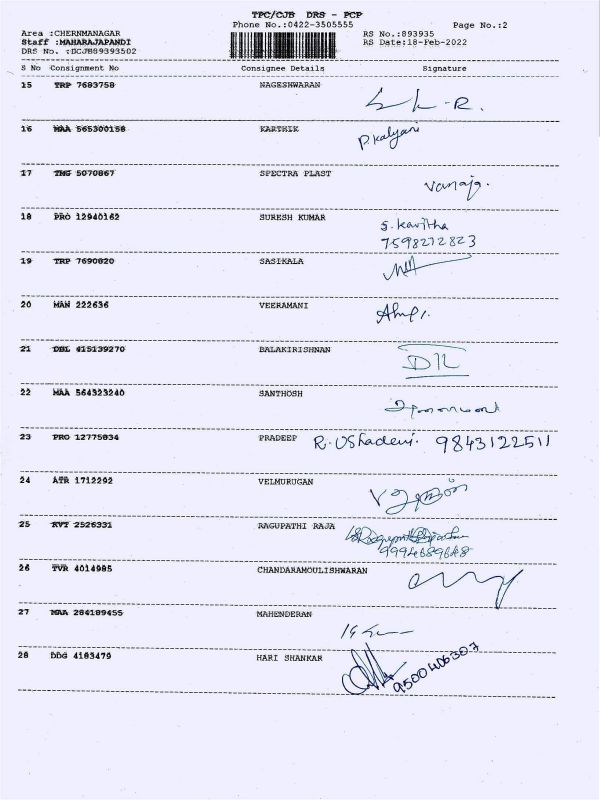 TPC/CJB DRS - PCP
Phone No.:0422-3505555 Page No.:2
Area :CHERNMANAGAR RS No.:893935
Staff :MAHARAJAPANDI RS Date:18-Feb-2022
DRS No. :DCJB89393502
S No Consignment No Consignee Details Signature
15 TRP 7683758 NAGESHWARAN
16 MAA 565300158 KARTHIK P.Kalyani
17 TMG 5070867 SPECTRA PLAST Vanaja.
18 PRO 12940162 SURESH KUMAR S. Kavitha
7598272823
19 TRP 7690820 SASIKALA
20 MAN 222636 VEERAMANI
21 DBL 415139270 BALAKIRISHNAN
22 MAA 564323240 SANTHOSH
23 PRO 12775834 PRADEEP R. Ushadevi. 9843122511
24 ATR 1712292 VELMURUGAN
25 KVT 2526331 RAGUPATHI RAJA
9994689648
26 TVR 4014985 CHANDARAMOULISHWARAN
27 MAA 284189455 MAHENDERAN
28 DDG 4183479 HARI SHANKAR 9500406307